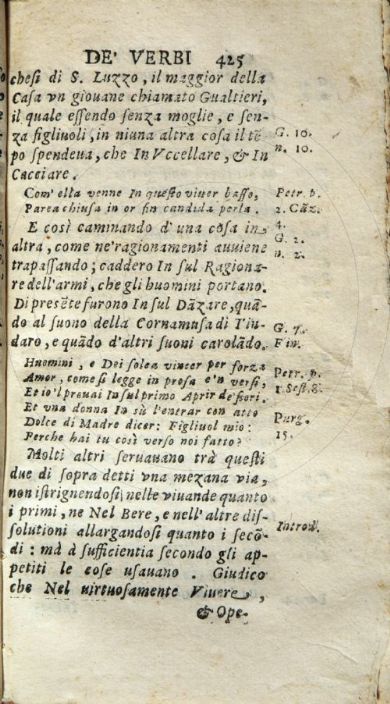 DE' VERBI 425
chesi di S. Luzzo, il maggior della
Casa vn giouane chiamato Gualtieri,
il quale essendo senza moglie, e sen-
za figliuoli, in niuna altra cosa il tē G. 10.
po spendeua, che In Vccellare, & In n. 10.
Cacciare.
Com' ella venne In questo viuer basso, Petr. p.
Parea chiusa in or fin candida perla. 2. Cāz.
E così caminando d'una cosa in- 4.
altra, come ne'ragionamenti auuiene G. 2.
trapassando; caddero In sul Ragiona- n. 2.
re dell'armi, che gli huomini portano.
Di presēte furono In sul Dāzare, quā-
do al suono della Cornamusa di Tin- G. 7.
daro, e quādo d'altri suoni carolādo. Fin.
Huomini, e Dei solea vincer per forza
Amor, come si legge in prosa e'n versi, Petr. p.
Et io'l prouai In sul primo Aprir de'fiori. 1. Sest. 8.
Et vna donna In sù l'entrar con atto
Dolce di Madre dicer: Figliuol mio: Purg.
Perche hai tu così verso noi fatto? 15.
Molti altri seruauano trà questi
due di sopra detti vna mezana via,
non istrignendosi nelle viuande quanto
i primi, ne Nel Bere, e nell' altre dis-
solutioni allargandosi quanto i secō- Introd.
di: mà à sufficientia secondo gli ap-
petiti le cose usauano. Giudico
che Nel virtuosamente Viuere,
& Ope-